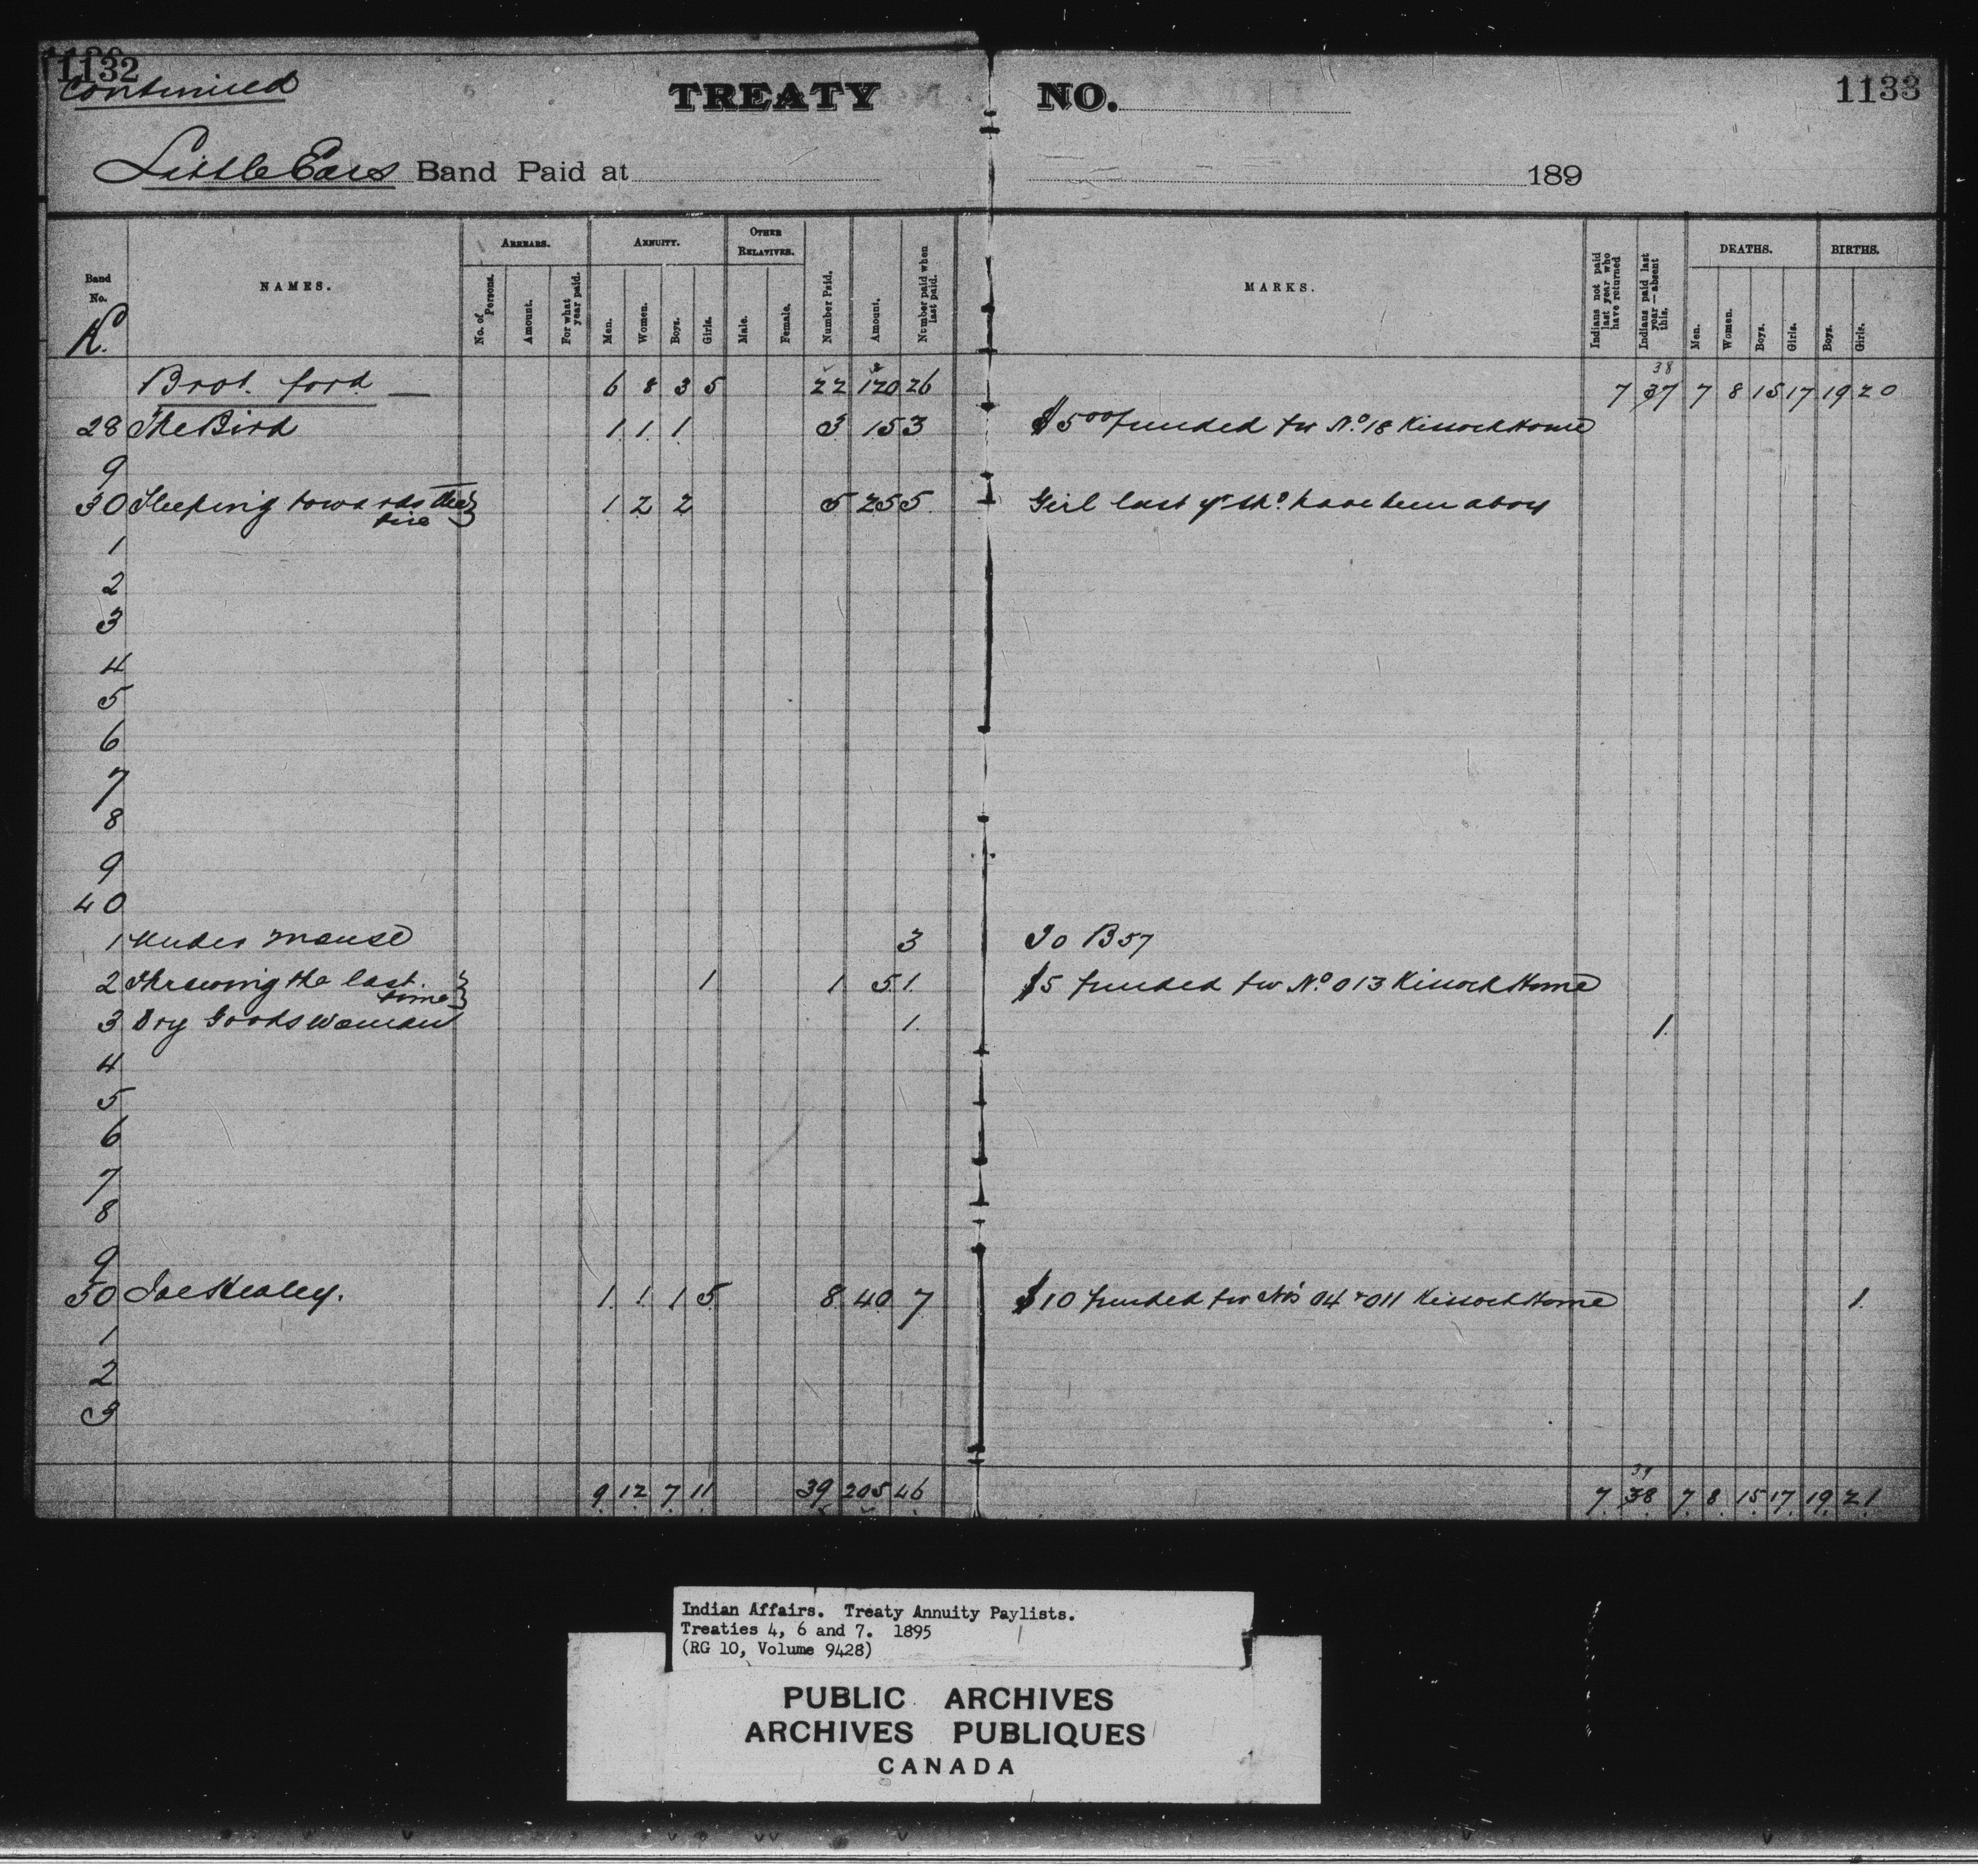 1132
Continued
TREATY NO.
1133
Little Ears Band Paid at 189
Band No.
K.
NAMES.
ARREARS.
No. of Persons.
Amount.
For what year paid.
ANNUITY.
Men.
Women.
Boys.
Girls.
OTHER RELATIVES.
Male.
Female.
Number Paid.
Amount.
Number paid when last paid.
MARKS.
Indians not paid last year who have returned
Indians paid last year—absent this.
DEATHS.
Men.
Women.
Boys.
Girls.
BIRTHS.
Boys.
Girls.
38
Brot. ford. — 6 8 3 5 22 120 26 7 37 7 8 15 17 19 20
28 The Bird 1 1 1 3 15 3 $5 00 funded for No. 18 Kissock Home
9
30 Sleeping towards the 1 2 2 5 25 5 Girl last yr shd. have been a boy
fire
1
2
3
4
5
6
7
8
9
40
1 Under Mouse 3 To B 57
2 Throwing the last 1 1 5 1. $5 funded for No. 013 Kissock Home
time
3 Dry Goods Woman 1. 1.
4
5
6
7
8
9
50 Joe Healey. 1. 1. 1 5 8 40 7 $10 funded for No's 04 & 011 Kissock Home 1.
1
2
3
39
9 12 7 11 39 205 46 7 38 7 8 15 17 19 21
Indian Affairs. Treaty Annuity Paylists.
Treaties 4, 6 and 7. 1895
(RG 10, Volume 9428)
PUBLIC ARCHIVES
ARCHIVES PUBLIQUES
CANADA